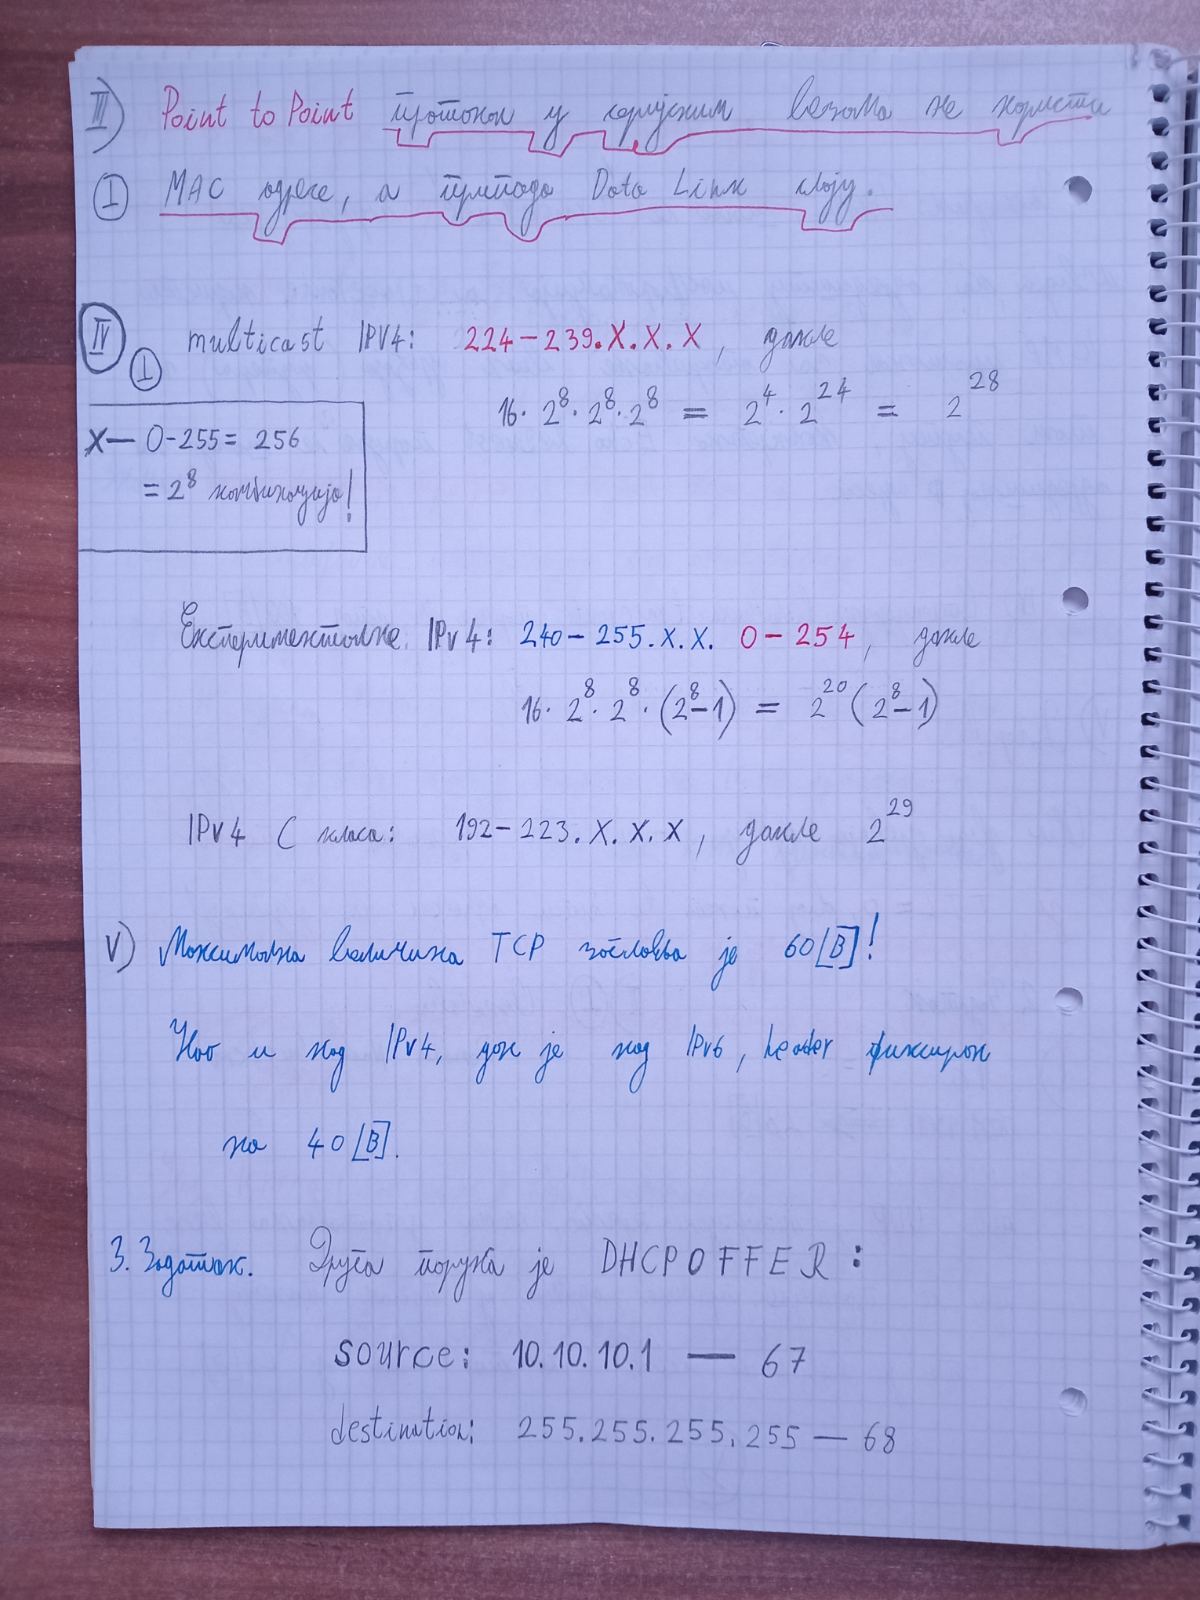 III) Point to Point протокол у серијским везама не користи
I MAC адресе, а припада Data Link слоју.
IV I multicast IPV4: 224-239.X.X.X, дакле
16 · 2^8 · 2^8 · 2^8 = 2^4 · 2^24 = 2^28
X — 0-255 = 256
= 2^8 комбинација!
Експерименталне IPv4: 240-255.X.X. 0-254, дакле
16 · 2^8 · 2^8 · (2^8-1) = 2^20 (2^8-1)
IPv4 C класа: 192-223.X.X.X, дакле 2^29
V) Максимална величина TCP заглавља је 60[B]!
Као и код IPv4, док је код IPv6, header фиксиран
на 40[B].
3. Задатак. Друга порука је DHCPOFFER:
source: 10.10.10.1 — 67
destination: 255.255.255.255 — 68